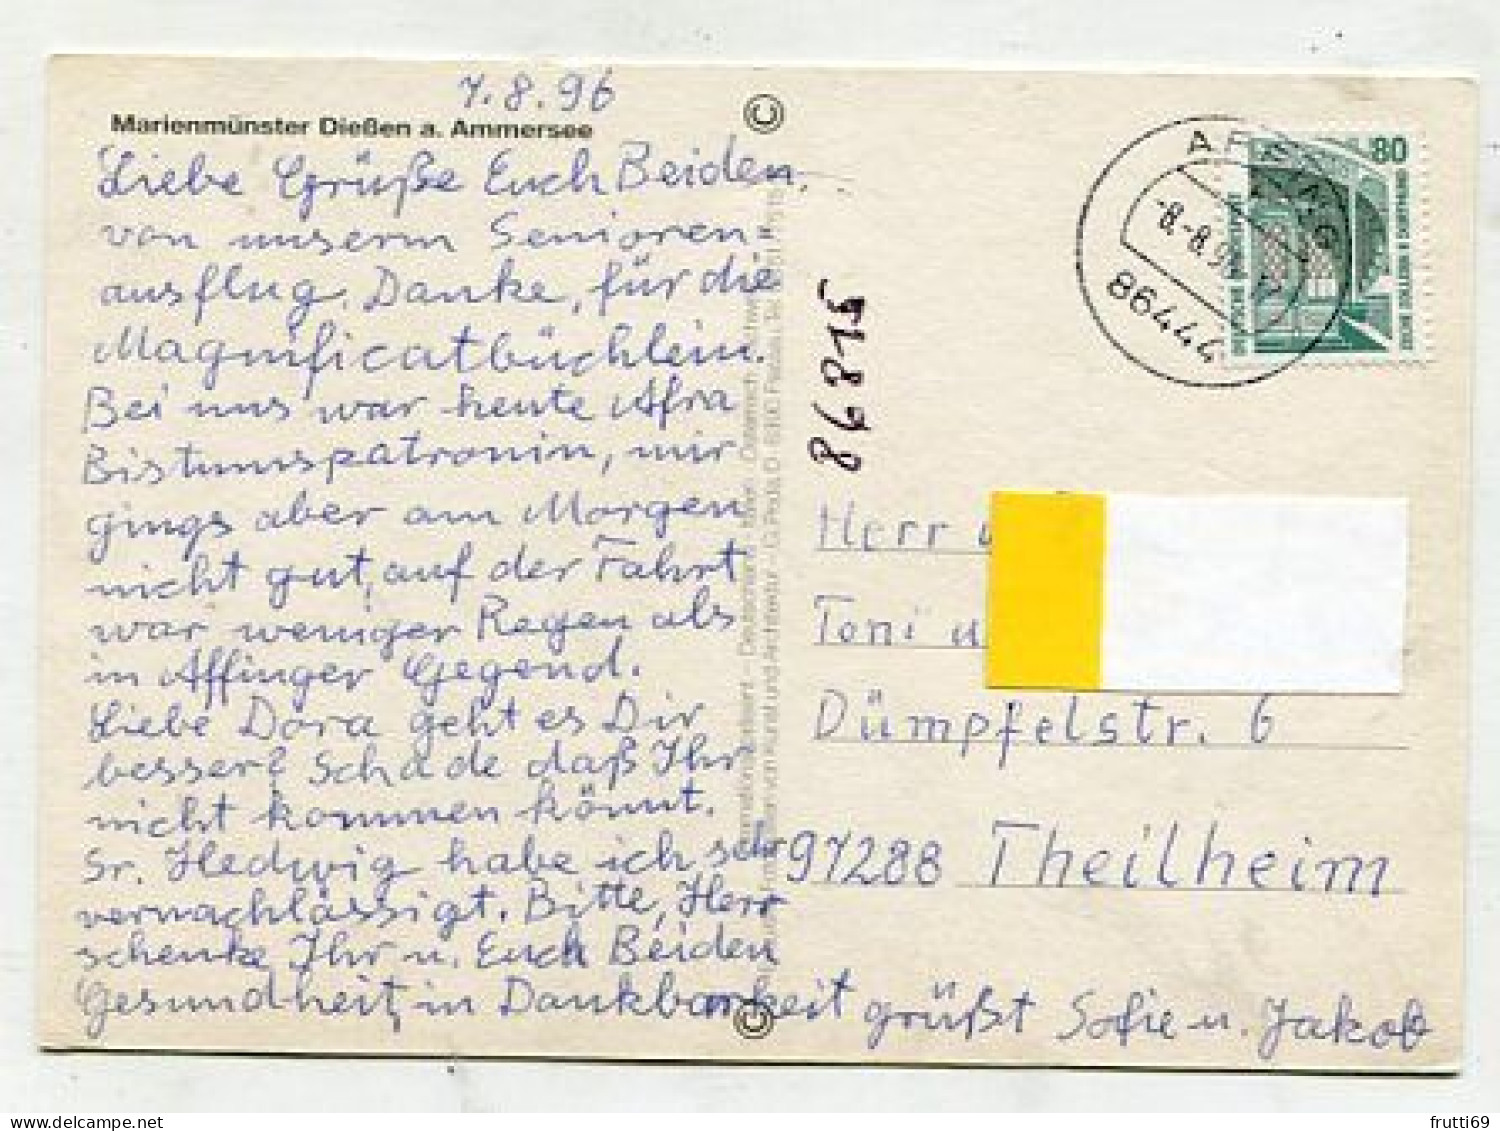 7.8.96
Marienmünster Dießen a. Ammersee
Liebe Grüße Euch Beiden,
von unserm Senioren=
ausflug. Danke, für die
Magnificatbüchlein.
Bei uns war heute Afra
Bistumspatronin, mir
gings aber am Morgen
nicht gut, auf der Fahrt
war weniger Regen als
in Affinger Gegend.
Liebe Dora geht es Dir
besser? Schade daß Ihr
nicht kommen könnt.
Sr. Hedwig habe ich sehr
vernachlässigt. Bitte, Herr
schenke Ihr u. Euch Beiden
Gesundheit, in Dankbarkeit grüßt Sofie u. Jakob
©
©
86815
86444
80
DEUTSCHE BUNDESPOST
ZECHE ZOLLERN II DORTMUND
Herr
Toni u
Dümpfelstr. 6
97288 Theilheim
frutti69